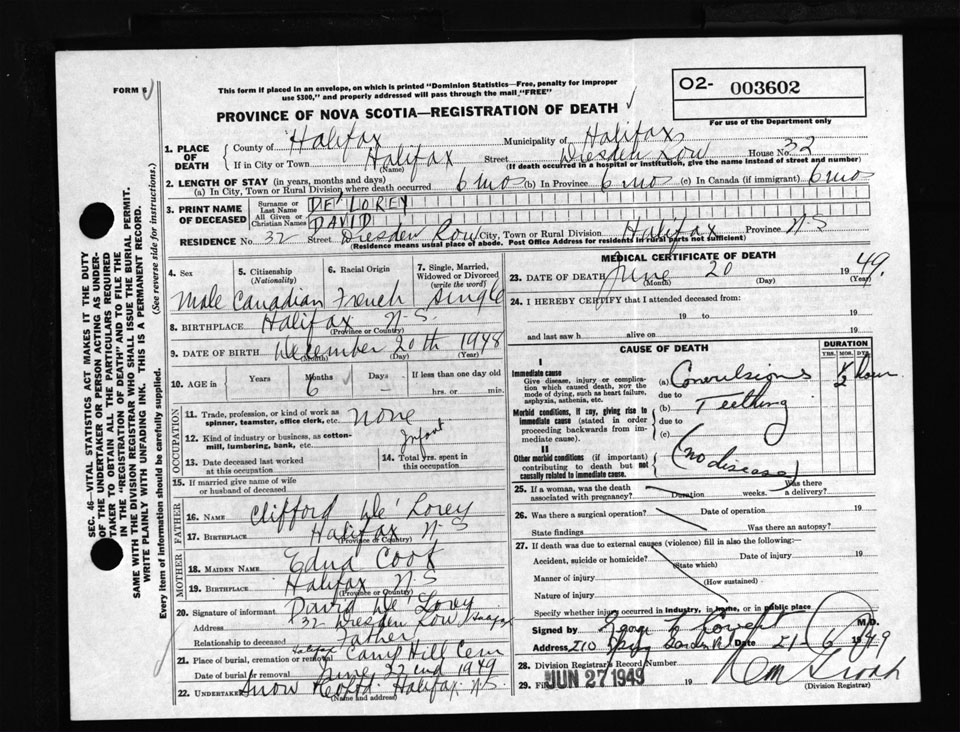 FORM 6
This form if placed in an envelope, on which is printed "Dominion Statistics—Free, penalty for improper
use $300," and properly addressed will pass through the mail "FREE"
O2- 003602
For use of the Department only
PROVINCE OF NOVA SCOTIA—REGISTRATION OF DEATH
1. PLACE OF DEATH
County of Halifax Municipality of Halifax
If in City or Town Halifax Street Dresden Row House No. 32
(Name) (If death occurred in a hospital or institution, give the name instead of street and number)
2. LENGTH OF STAY (in years, months and days)
(a) In City, Town or Rural Division where death occurred 6 mos (b) In Province 6 mos (c) In Canada (if immigrant) 6 mos
3. PRINT NAME OF DECEASED
Surname or Last Name DE'LOREY
All Given or Christian Names DAVID
RESIDENCE No. 32 Street Dresden Row City, Town or Rural Division Halifax Province N-S
(Residence means usual place of abode. Post Office Address for residents in rural parts not sufficient)
4. Sex
Male
5. Citizenship (Nationality)
Canadian
6. Racial Origin
French
7. Single, Married, Widowed or Divorced (write the word)
Single
8. BIRTHPLACE Halifax N-S.
(Province or Country)
9. DATE OF BIRTH December 20th 1948
(Month) (Day) (Year)
10. AGE in Years Months Days If less than one day old
6 – hrs. or min.
OCCUPATION
11. Trade, profession, or kind of work as spinner, teamster, office clerk, etc. none
12. Kind of industry or business, as cotton-mill, lumbering, bank, etc. Infant
13. Date deceased last worked at this occupation
14. Total yrs. spent in this occupation
15. If married give name of wife or husband of deceased
FATHER
16. NAME Clifford De' Lorey
17. BIRTHPLACE Halifax N-S
(Province or Country)
MOTHER
18. MAIDEN NAME Edna Cook
19. BIRTHPLACE Halifax N.S.
(Province or Country)
20. Signature of informant David De' Lorey
Address 32 Dresden Row, Halifax
Relationship to deceased Father
21. Place of burial, cremation or removal Halifax Camp Hill Cem
Date of burial or removal June 22nd 1949
22. Undertaker Snow Halifax N.S.
(Name and address)
MEDICAL CERTIFICATE OF DEATH
23. DATE OF DEATH June 20 1949.
(Month) (Day) (Year)
24. I HEREBY CERTIFY that I attended deceased from:
19 to 19
and last saw h alive on 19
CAUSE OF DEATH
DURATION
YRS. MOS. DYS.
I
Immediate cause
Give disease, injury or complication which caused death, not the mode of dying, such as heart failure, asphyxia, asthenia, etc.
(a) Convulsions 1/2 hour
due to
Morbid conditions, if any, giving rise to immediate cause (stated in order proceeding backwards from immediate cause).
(b) Teething
due to
(c)
II
Other morbid conditions (if important) contributing to death but not causally related to immediate cause.
(no disease)
25. If a woman, was the death associated with pregnancy? Duration weeks. Was there a delivery?
26. Was there a surgical operation? Date of operation 19
State findings Was there an autopsy?
27. If death was due to external causes (violence) fill in also the following:—
Accident, suicide or homicide? Date of injury 19
(State which)
Manner of injury
(How sustained)
Nature of injury
Specify whether injury occurred in industry, in home, or in public place
Signed by M.D.
Address 210 Spring Garden Rd Date 21-6 1949
28. Division Registrar's Record Number
29. Filed JUN 27 1949 19
(Division Registrar)
SEC. 46—VITAL STATISTICS ACT MAKES IT THE DUTY
OF THE UNDERTAKER OR PERSON ACTING AS UNDER-
TAKER TO OBTAIN ALL THE PARTICULARS REQUIRED
IN THE "REGISTRATION OF DEATH" AND TO FILE THE
SAME WITH THE DIVISION REGISTRAR WHO SHALL ISSUE THE BURIAL PERMIT.
WRITE PLAINLY WITH UNFADING INK. THIS IS A PERMANENT RECORD.
Every item of information should be carefully supplied. (See reverse side for instructions.)